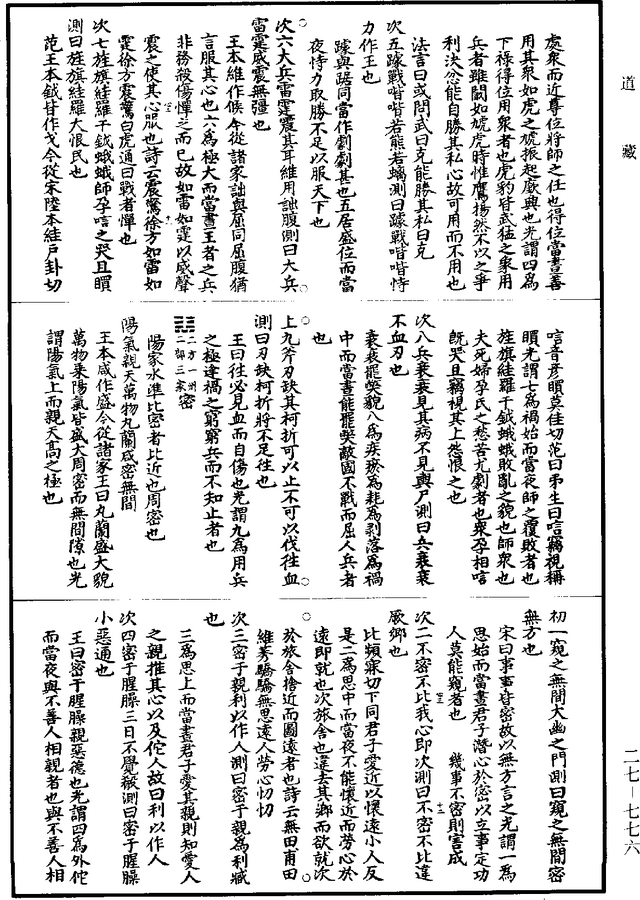 道藏
處衆而近尊位將師之任也得位當晝善
用其衆如虎之虓振起厥興也光謂四爲
下祿得位用衆者也虎豹皆武猛之象用
兵者雖闞如虓虎時惟鷹揚然不以之爭
利決然能自勝其私心故可用而不用也
法言曰或問武曰克能勝其私曰克
次五躆戰喈喈若熊若螭測曰躆戰喈喈恃
力作王也
躆與踞同當作劇劇甚也五居盛位而當
夜恃力取勝不足以服天下也
次六大兵雷霆震其耳維用詘腹測曰大兵
雷霆威震無疆也
王本維作候今從諸家詘與屈同屈腹猶
言服其心也六爲極大而當晝王者之兵
非務殺傷憚之而已故如雷如霆以威聲
震之使其心服也詩云震驚徐方如雷如
霆徐方震驚白虎通曰戰者憚也
次七旌旗絓羅干鉞蛾蛾師孕唁之哭且瞑
測曰旌旗絓羅大恨民也
范王本鉞皆作戈今從宋陸本絓戶卦切
唁音彥瞑莫佳切范曰弔生曰唁竊視稱
瞑光謂七爲禍始而當夜師之覆敗者也
旌旗絓羅干鉞蛾蛾敗亂之貌也師衆也
夫死婦孕民之愁苦尤劇者也衆孕相唁
旣哭且竊視其上怨恨之也
次八兵衰衰見其病不見輿尸測曰兵衰衰
不血刃也
衰衰罷獘貌八爲疾瘀爲耗爲剝落爲禍
中而當晝能罷獘敵國不戰而屈人兵者
也
上九斧刃缺其柯折可以止不可以伐徃血
測曰刃缺柯折將不足徃也
王曰徃必見血而自傷也光謂九爲用兵
之極逢禍之窮窮兵而不知止者也
二方一州二部三家密
陽家水準比密者比近也周密也
陽氣親天萬物丸蘭咸密無間
王本咸作盛今從諸家王曰丸蘭盛大貌
萬物乘陽氣皆盛大周密而無間隙也光
謂陽氣上而親天高之極也
初一窺之無間大幽之門測曰窺之無間密
無方也
宋曰事事皆密故以無方言之光謂一爲
思始而當晝君子潛心於密以立事定功
人莫能窺者也 幾事不密則害成
次二不密不比我心即次測曰不密不比違
厥鄉也
比頻寐切下同君子愛近以懷遠小人反
是二爲思中而當夜不能懷近而勞心於
遠即就也次旅舍也違去其鄉而欲就次
於旅舍捨近而圖遠者也詩云無田甫田
維莠驕驕無思遠人勞心忉忉
次三密于親利以作人測曰密于親爲利臧
也
三爲思上而當晝君子愛其親則知愛人
之親推其心以及佗人故曰利以作人
次四密于腥臊三日不覺殽測曰密于腥臊
小惡通也
王曰密于腥臊親惡德也光謂四爲外佗
而當夜與不善人相親者也與不善人相
二七—七七六